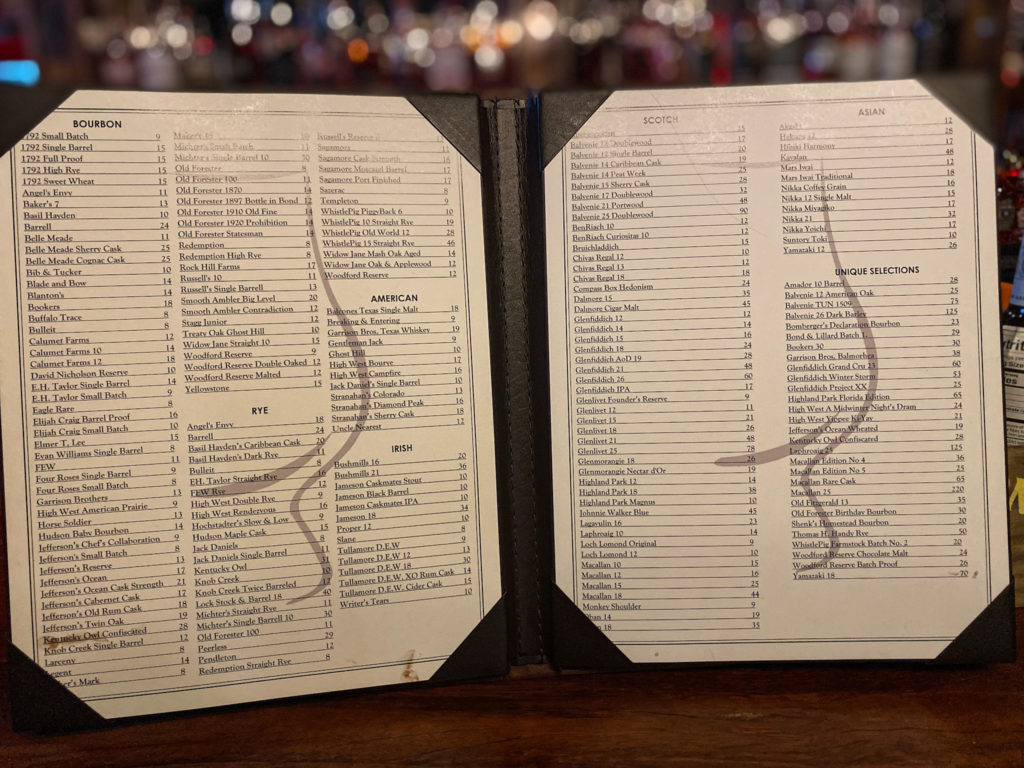 BOURBON
1792 Small Batch 9
1792 Single Barrel 15
1792 Full Proof 15
1792 High Rye 15
1792 Sweet Wheat 15
Angel's Envy 11
Baker's 7 13
Basil Hayden 10
Barrell 24
Belle Meade 11
Belle Meade Sherry Cask 25
Belle Meade Cognac Cask 25
Bib & Tucker 10
Blade and Bow 14
Blanton's 14
Bookers 18
Buffalo Trace 8
Bulleit 8
Calumet Farms 12
Calumet Farms 10 14
Calumet Farms 12
David Nicholson Reserve 10
E.H. Taylor Single Barrel 14
E.H. Taylor Small Batch 9
Eagle Rare
Elijah Craig Barrel Proof 16
Elijah Craig Small Batch 10
Elmer T. Lee 15
Evan Williams Single Barrel 8
FEW 11
Four Roses Single Barrel 9
Four Roses Small Batch 8
Garrison Brothers 13
High West American Prairie 9
Horse Soldier 13
Hudson Baby Bourbon 14
Jefferson's Chef's Collaboration 9
Jefferson's Small Batch 8
Jefferson's Reserve 13
Jefferson's Ocean 17
Jefferson's Ocean Cask Strength 21
Jefferson's Cabernet Cask 17
Jefferson's Old Rum Cask 18
Jefferson's Twin Oak 19
Kentucky Owl Confiscated 28
Knob Creek Single Barrel 12
Larceny 8
Legent 14
Mark 8
Maker's 46 10
Michter's Small Batch 11
Michter's Single Barrel 10 30
Old Forester 8
Old Forester 100
Old Forester 1870 14
Old Forester 1897 Bottle in Bond 12
Old Forester 1910 Old Fine 14
Old Forester 1920 Prohibition 14
Old Forester Statesman 14
Redemption 8
Redemption High Rye 8
Rock Hill Farms 17
Russell's 10 11
Russell's Single Barrell 13
Smooth Ambler Big Level 20
Smooth Ambler Contradiction 12
Stagg Junior 12
Treaty Oak Ghost Hill 10
Widow Jane Straight 10 15
Woodford Reserve 9
Woodford Reserve Double Oaked 12
Woodford Reserve Malted 12
Yellowstone 15
RYE
Angel's Envy 18
Barrell 24
Basil Hayden's Caribbean Cask 20
Basil Hayden's Dark Rye 11
Bulleit 8
EH. Taylor Straight Rye 16
FEW Rye 12
High West Double Rye 9
High West Rendezvous 16
Hochstadter's Slow & Low 9
Hudson Maple Cask 15
Jack Daniels 8
Jack Daniels Single Barrel 11
Kentucky Owl 31
Knob Creek 10
Knob Creek Twice Barreled 12
Lock Stock & Barrel 18 40
Michter's Straight Rye 11
Michter's Single Barrel 10 30
Old Forester 100 11
Peerless 29
Pendleton 12
Redemption Straight Rye 8
Russell's Reserve
Sagamore 11
Sagamore Cask Strength 16
Sagamore Moscatel Barrel 17
Sagamore Port Finished 17
Sazerac 8
Templeton 9
WhistlePig PiggyBack 6 10
WhistlePig 10 Straight Rye 19
WhistlePig Old World 12 28
WhistlePig 15 Straight Rye 46
Widow Jane Mash Oak Aged 14
Widow Jane Oak & Applewood 12
Woodford Reserve 12
AMERICAN
Balcones Texas Single Malt 18
Breaking & Entering 9
Garrison Bros. Texas Whiskey 19
Gentleman Jack 9
Ghost Hill 10
High West Bourye 17
High West Campfire 16
Jack Daniel's Single Barrel 10
Stranahan's Colorado 13
Stranahan's Diamond Peak 16
Stranahan's Sherry Cask 18
Uncle Nearest 12
IRISH
Bushmills 16 20
Bushmills 21 36
Jameson Caskmates Stout 10
Jameson Black Barrel 10
Jameson Caskmates IPA 10
Jameson 18 34
Proper 12 8
Slane 8
Tullamore D.E.W 8
Tullamore D.E.W 12 13
Tullamore D.E.W 18 30
Tullamore D.E.W. XO Rum Cask 14
Tullamore D.E.W. Cider Cask 15
Writer's Tears 10
SCOTCH
15
Balvenie 12 Doublewood 17
Balvenie 14 Single Barrel 20
Balvenie 14 Caribbean Cask 19
Balvenie 14 Peat Week 25
Balvenie 15 Sherry Cask 28
Balvenie 17 Doublewood 32
Balvenie 21 Portwood 48
Balvenie 25 Doublewood 90
BenRiach 10 12
BenRiach Curiositas 10 12
Bruichladdich 15
Chivas Regal 12 10
Chivas Regal 13 12
Chivas Regal 18 18
Compass Box Hedonism 24
Dalmore 15 35
Dalmore Cigar Malt 45
Glenfiddich 12 12
Glenfiddich 14 14
Glenfiddich 15 16
Glenfiddich 18 24
Glenfiddich AoD 19 28
Glenfiddich 21 48
Glenfiddich 26 60
Glenfiddich IPA 17
Glenlivet Founder's Reserve 9
Glenlivet 12 11
Glenlivet 15 18
Glenlivet 18 26
Glenlivet 21 48
Glenlivet 25 78
Glenmorangie 18 26
Glenmorangie Nectar d'Or 19
Highland Park 12 14
Highland Park 18 38
Highland Park Magnus 10
Johnnie Walker Blue 45
Lagavulin 16 23
Laphroaig 10 14
Loch Lomond Original 9
Loch Lomond 12 10
Macallan 10 15
Macallan 12 16
Macallan 15 25
Macallan 18 44
Monkey Shoulder 9
Oban 14 19
18 35
ASIAN
Akashi 12
Hakushu 12 28
Hibiki Harmony 17
Kavalan 48
Mars Iwai 12
Mars Iwai Traditional 18
Nikka Coffey Grain 16
Nikka 12 Single Malt 15
Nikka Miyagiko 17
Nikka 21 32
Nikka Yoichi 17
Suntory Toki 10
Yamazaki 12 26
UNIQUE SELECTIONS
Amador 10 Barrel 28
Balvenie 12 American Oak 25
Balvenie TUN 1509 75
Balvenie 26 Dark Barley 125
Bomberger's Declaration Bourbon 23
Bond & Lillard Batch 1 29
Bookers 30 30
Garrison Bros. Balmorhea 38
Glenfiddich Grand Cru 23 60
Glenfiddich Winter Storm 53
Glenfiddich Project XX 25
Highland Park Florida Edition 65
High West A Midwinter Night's Dram 24
High West Yippee Ki-Yay 21
Jefferson's Ocean Wheated 19
Kentucky Owl Confiscated 28
Laphroaig 25 125
Macallan Edition No 4 36
Macallan Edition No 5 25
Macallan Rare Cask 65
Macallan 25 220
Old Fitzgerald 13 35
Old Forester Birthday Bourbon 30
Shenk's Homestead Bourbon 20
Thomas H. Handy Rye 50
WhistlePig Farmstock Batch No. 2 20
Woodford Reserve Chocolate Malt 24
Woodford Reserve Batch Proof 26
Yamazaki 18 70